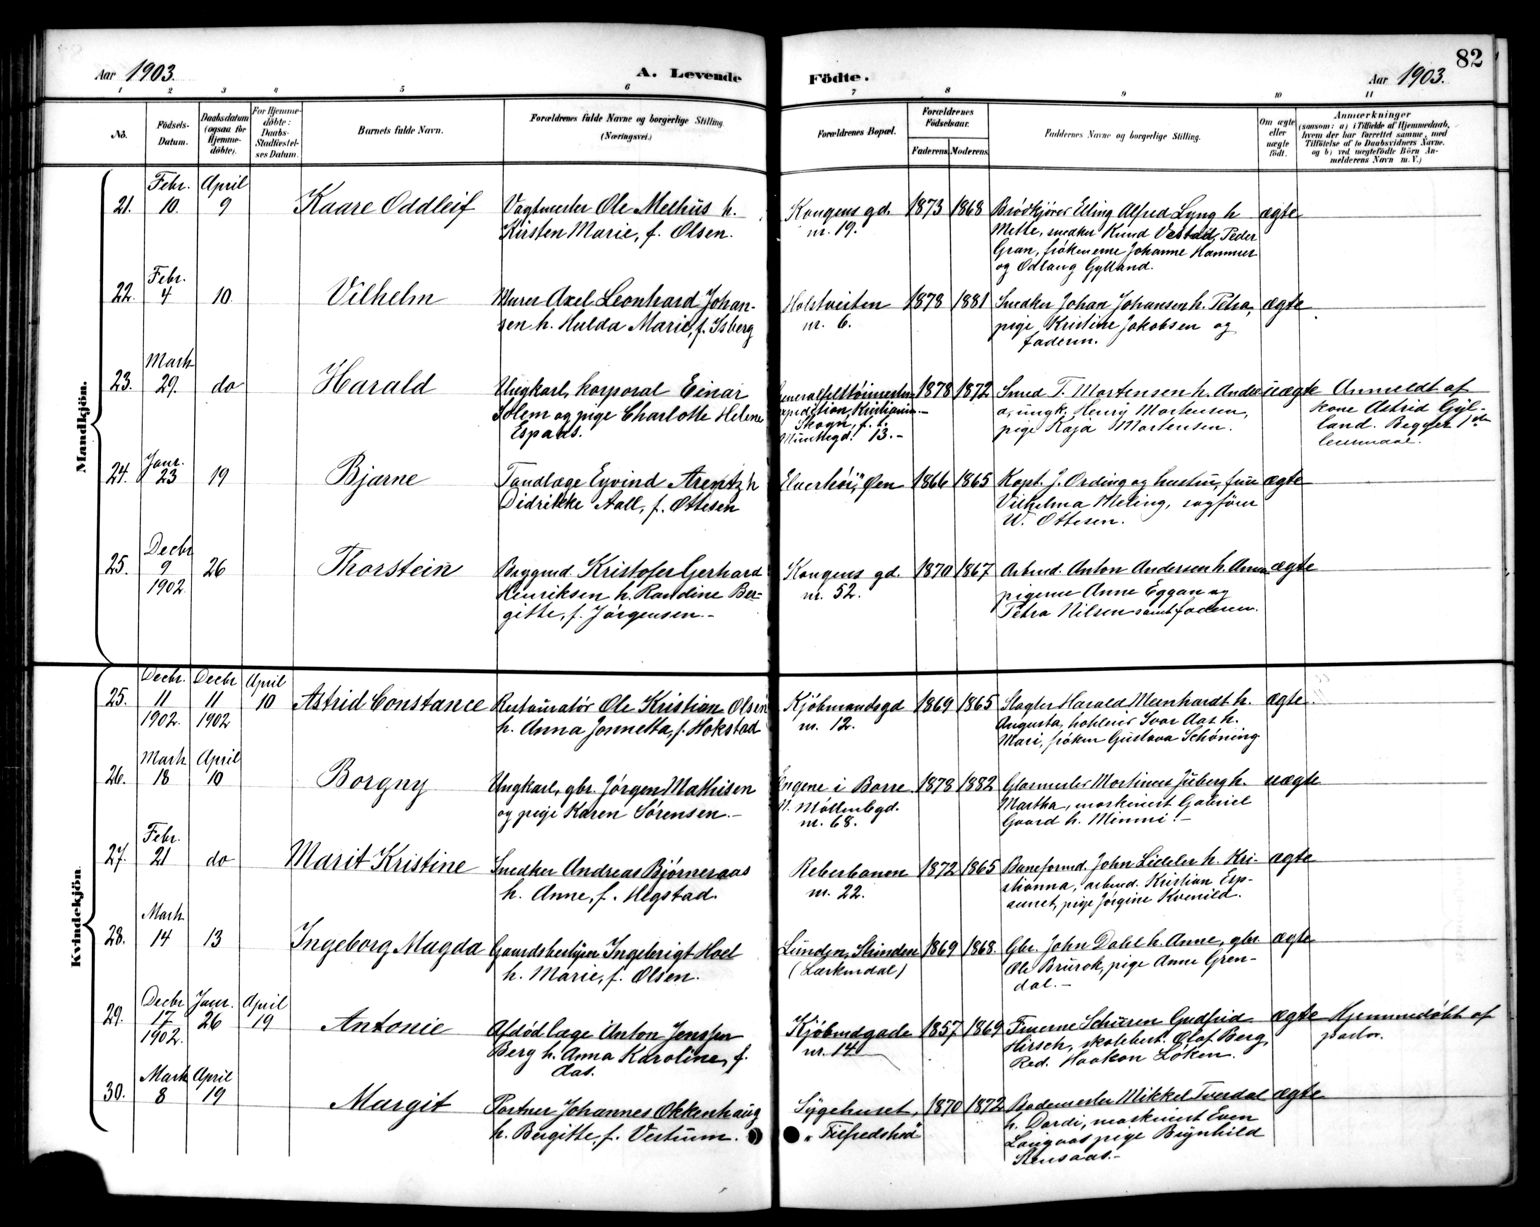 82
Aar 1903. A. Levende Födte. Aar 1903.
1 2 3 4 5 6 7 8 9 10 11
No. Födsels-Datum. Daabsdatum (ogsaa for Hjemme-döbte). For Hjemme-döbte: Daabs-Stadfæstel-ses Datum. Barnets fulde Navn. Forældrenes fulde Navne og borgerlige Stilling. (Næringsvei.) Forældrenes Bopæl. Forældrenes Födselsaar. Faderens. Moderens. Faddernes Navne og borgerlige Stilling. Om ægte eller uægte födt. Anmærkninger
(saasom: a) i Tilfælde af Hjemmedaab,
hvem der har forrettet samme, med
Tilföielse af to Daabsvidners Navne.
og b) ved uægtefödte Börn An-
melderens Navn m. V.)
Mandkjön.
21. Febr. 10 April 9 Kaare Oddleif
Vagtmester Ole Melhus h.
Kirsten Marie, f. Olsen.
Kongens gd.
nr. 19.
1873 1868
Brödkjører Elling Alfred Lyng h
Mette, snedker Knud Vestad, Peder
Gran, frøknerne Johanne Hammer
og Odlaug Gylland.
ægte
22. Febr. 4 10 Vilhelm
Murer Axel Leonhard Johan-
sen h. Hulda Marie, f. Isberg
Holstveiten
nr. 6.
1878 1881
Snedker Johan Johansen h. Petra,
pige Kristine Jakobsen og
faderen.
ægte
23. Marts 29. do Harald
Ungkarl, korporal Einar
Solem og pige Charlotte Helene
Espaas.
Generalfelttøimester-
expedition, Kristiania
Skogn, f. t.
Munkegd. 13.-
1878 1872
Smed T. Mortensen h. Ande-
a, ungk. Henry Mortensen,
pige Kaja Mortensen.
uægte
Anmeldt af
kone Astrid Gyl-
land. Begges 1ste
leiermaal.
24. Janr. 23 19 Bjarne
Tandlæge Eyvind Arentz h
Didrikke Aall, f. Ottesen
"Elverhøi", Øen
1866 1865
Kapt. J. Ording og hustru, frue
Vilhelma Meling, sagfører
W. Ottesen.
ægte
25. Decbr 9 1902 26 Thorstein
Byggmd. Kristofer Gerhard
Henriksen h. Randine Ber-
gitte, f. Jørgensen.-
Kongens gd.
nr. 52.
1870 1867
Arbmd. Anton Andersen h. Anna
pigerne Anne Eggan og
Petra Nilsen samt faderen.
ægte
Kvindekjön.
25. Decbr. 11 1902. Decbr 11 1902 April 10 Astrid Constance
Restauratør Ole Kristian Olsen
h. Anna Jonnetta, f. Hokstad
Kjøbmandsgd
nr. 12.
1869 1865
Slagter Harald Meinhardt h.
Augusta, hoteleier Ivar Aas h.
Mari, frøken Gustava Schöning
ægte.
26. Marts 18 April 10 Borgny
Ungkarl, gbr. Jørgen Mathisen
og pige Karen Sørensen.-
Engene i Borre
N. Möllenbgd.
nr. 68.
1878 1882
Glasmester Martinus Juberg h.
Martha, maskinist Gabriel
Gaard h. Mimmi.-
uægte
27. Febr. 21 do Marit Kristine
Snedker Andreas Bjørneraas
h. Anne, f. Hegstad.
Reberbanen
nr. 22.
1872 1865
Baneformd. John Lideler h. Kri-
stianna, arbmd. Kristian Esp-
aunet, pige Jørgine Kvenild.
ægte
28. Marts 14 13 Ingeborg Magda
Gaardsbestyrer Ingebrigt Hoel
h. Marie, f. Olsen.
Lunden, Strinden
(Lærkendal)
1869 1868.
Gbr. John Dahl h. Anne, gbr.
Ole Brurok, pige Anne Gren-
dal.-
ægte
29. Decbr 17 1902. Janr. 26 April 19 Antonie
Afdød læge Anton Jenssen
Berg h. Anna Karoline, f.
das.
Kjøbmdgade
nr. 14
1857 1869
Fruerne Schüren Gudfrid
Hirsch, skolebest. Olaf Berg,
Red. Haakon Løken.
ægte
Hjemmedøbt af
pastor.
30. Marts 8 April 19 Margit
Portner Johannes Okkenhaug
h. Bergitte, f. Vestrum.
Sygehuset,
"Tilfredshed"
1870 1872
Bademester Mikkel Tverdal
h. Dardi, maskinist Even
Langaas pige Brynhild
Stensaas.-
ægte